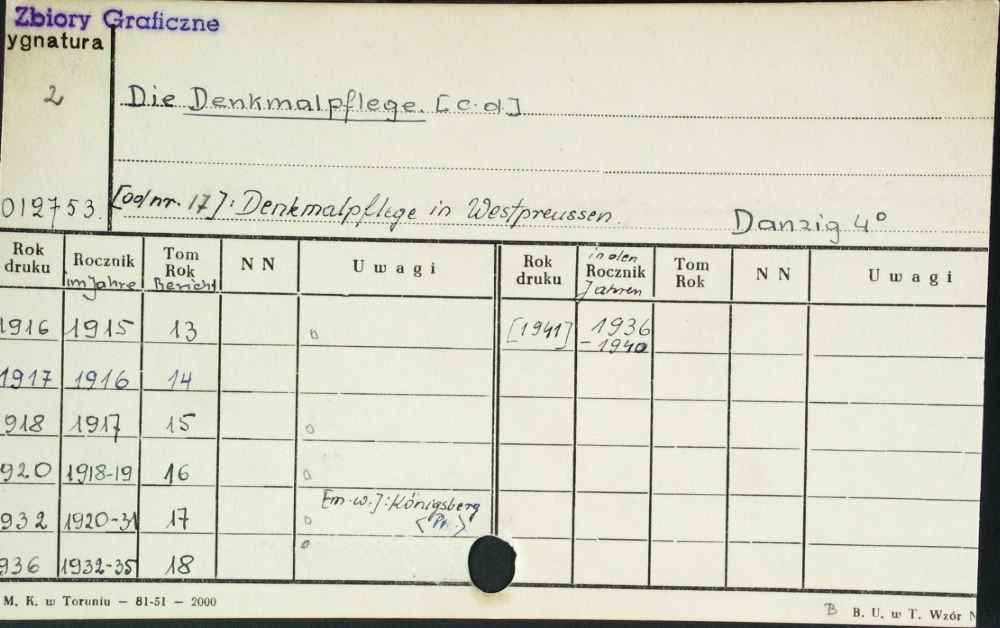 Zbiory Graficzne
ygnatura
2
Die Denkmalpflege. [c.d]
012753.
[od nr. 17]: Denkmalpflege in Westpreussen.
Danzig 4°
Rok druku | Rocznik im Jahre | Tom Rok Bericht | N N | Uwagi | Rok druku | in den Rocznik Jahren | Tom Rok | N N | Uwagi
1916 1915 13 [1941] 1936
- 1940
1917 1916 14
918 1917 15
920 1918-19 16
[m.w.]: Königsberg
932 1920-31 17 <Pr.>
936 1932-35 18
M. K. w Toruniu — 81-51 — 2000
B B. U. w T. Wzór